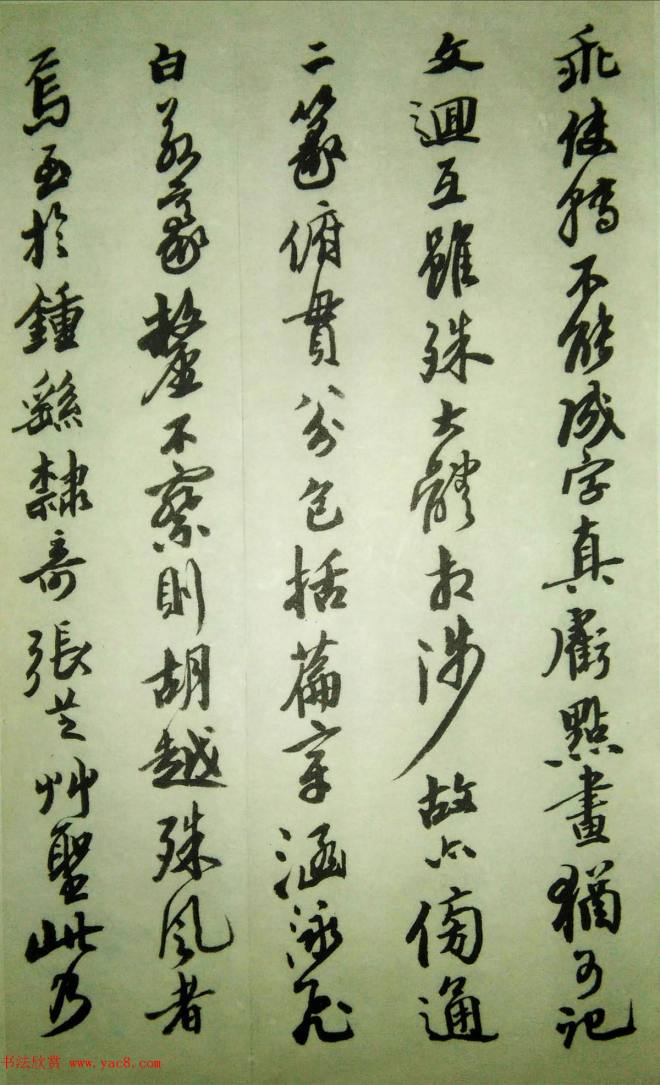 乖使轉不能成字真虧點畫猶可記
文迴互雖殊大體相涉故亦傍通
二篆俯貫八分包括篇章涵泳飛
白若豪釐不察則胡越殊風者
焉至於鍾繇隸奇張芝艸聖此乃
书法欣赏 www.yac8.com